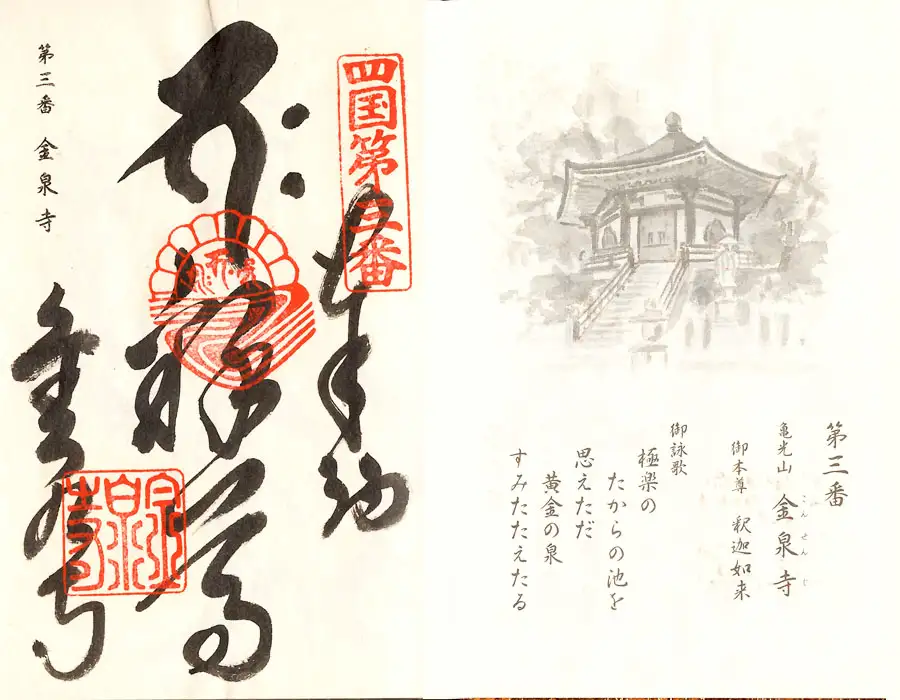 第三番
亀光山 金泉寺
こんせんじ
御本尊 釈迦如来
御詠歌
極楽の
たからの池を
思えただ
黄金の泉
すみたたえたる
四国第三番
奉納
金泉寺
金泉寺
第三番 金泉寺